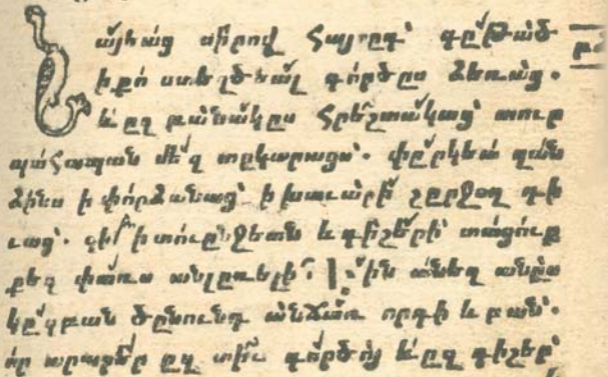 այեաց սիրով Հայրըդ գըթած
ի քո ստեղծեալ գործըս ձեռաց.
եւ ըզ բանակըս Հրեշտակաց տուր
պահապան մեզ տըկարացս. փըրկեա զան
ձինս ի փորձանաց ի խաւարի շըրջօղ դի
ւաց. զի ի տուընջեան և գիշերի տացուք
քեզ փառս անլըռելի. անեղ անըս
կըզբան ծընունդ անճառ որդի և բան.
որ արարեր ըզ տիւ գործոյ եւ ըզ գիշեր